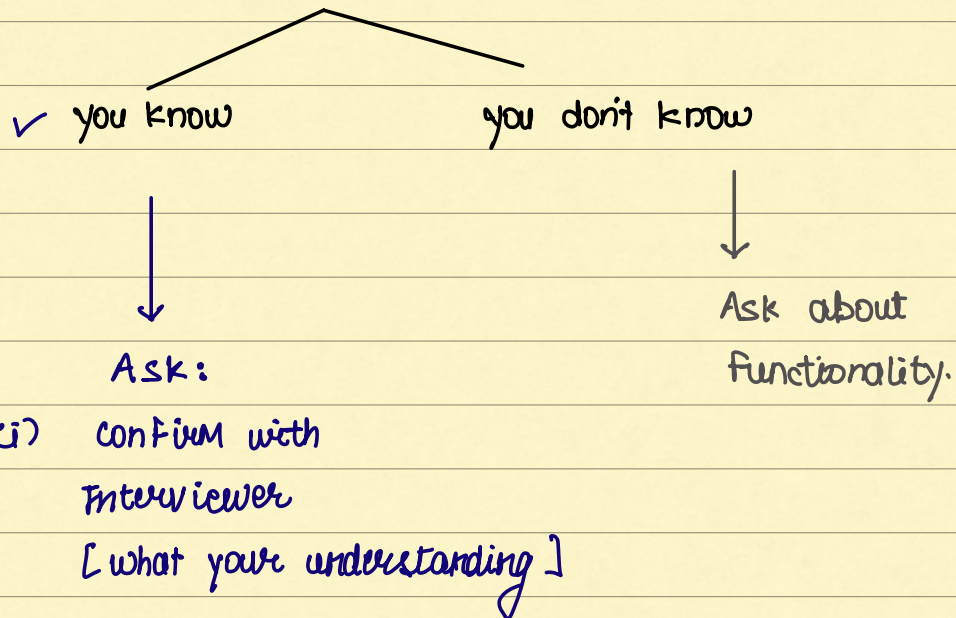 ✓ you know
you don't know
Ask about
functionality.
Ask:
(i) confirm with
Interviewer
[what your understanding]